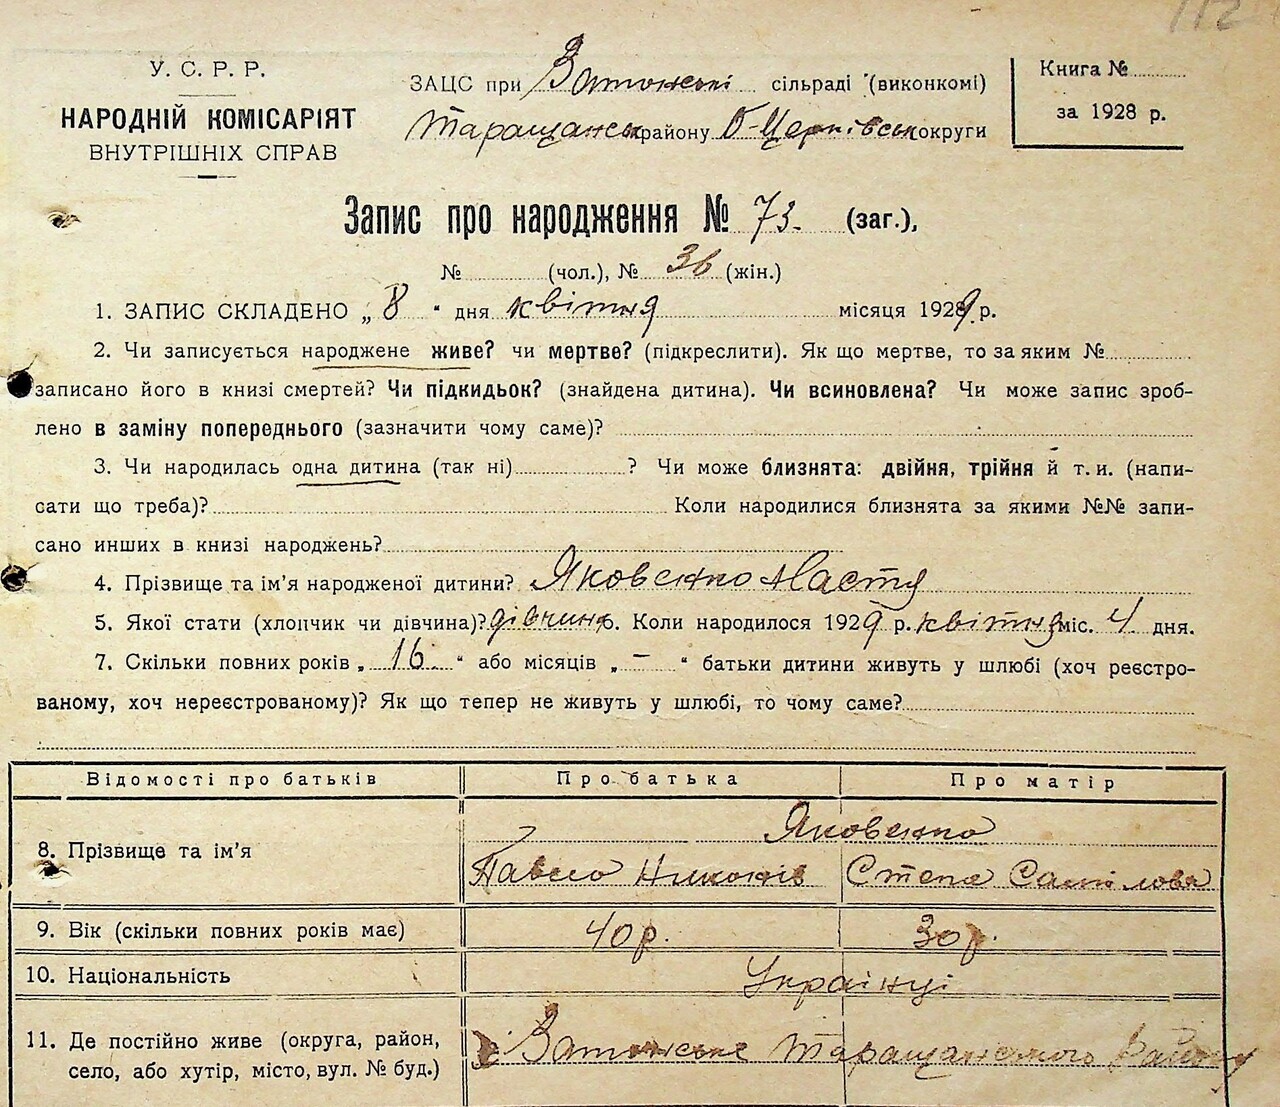 112
У. С. Р. Р.
НАРОДНІЙ КОМІСАРІЯТ
ВНУТРІШНІХ СПРАВ
ЗАЦС при Затонські сільраді (виконкомі)
Таращанськ району Б-Церківськ округи
Книга №
за 1928 р.
Запис про народження № 73. (заг.),
№ (чол.), № 36 (жін.)
1. ЗАПИС СКЛАДЕНО „ 8 " дня квітня місяця 1929 р.
2. Чи записується народжене живе? чи мертве? (підкреслити). Як що мертве, то за яким №
записано його в книзі смертей? Чи підкидьок? (знайдена дитина). Чи всиновлена? Чи може запис зроб-
лено в заміну попереднього (зазначити чому саме)?
3. Чи народилась одна дитина (так ні) ? Чи може близнята: двійня, трійня й т. и. (напи-
сати що треба)? Коли народилися близнята за якими №№ запи-
сано инших в книзі народжень?
4. Прізвище та ім'я народженої дитини? Яковенко Настя
5. Якої стати (хлопчик чи дівчина)? дівчина 6. Коли народилося 1929 р. квітня міс. 4 дня.
7. Скільки повних років „ 16 " або місяців „ — " батьки дитини живуть у шлюбі (хоч реєстро-
ваному, хоч нереєстрованому)? Як що тепер не живуть у шлюбі, то чому саме?
Відомості про батьків Про батька Про матір
8. Прізвище та ім'я Яковенко
Павло Никонів Степа Самілова
9. Вік (скільки повних років має) 40 р. 30 р.
10. Національність Українці
11. Де постійно живе (округа, район,
село, або хутір, місто, вул. № буд.)
Затонське Таращанского Району